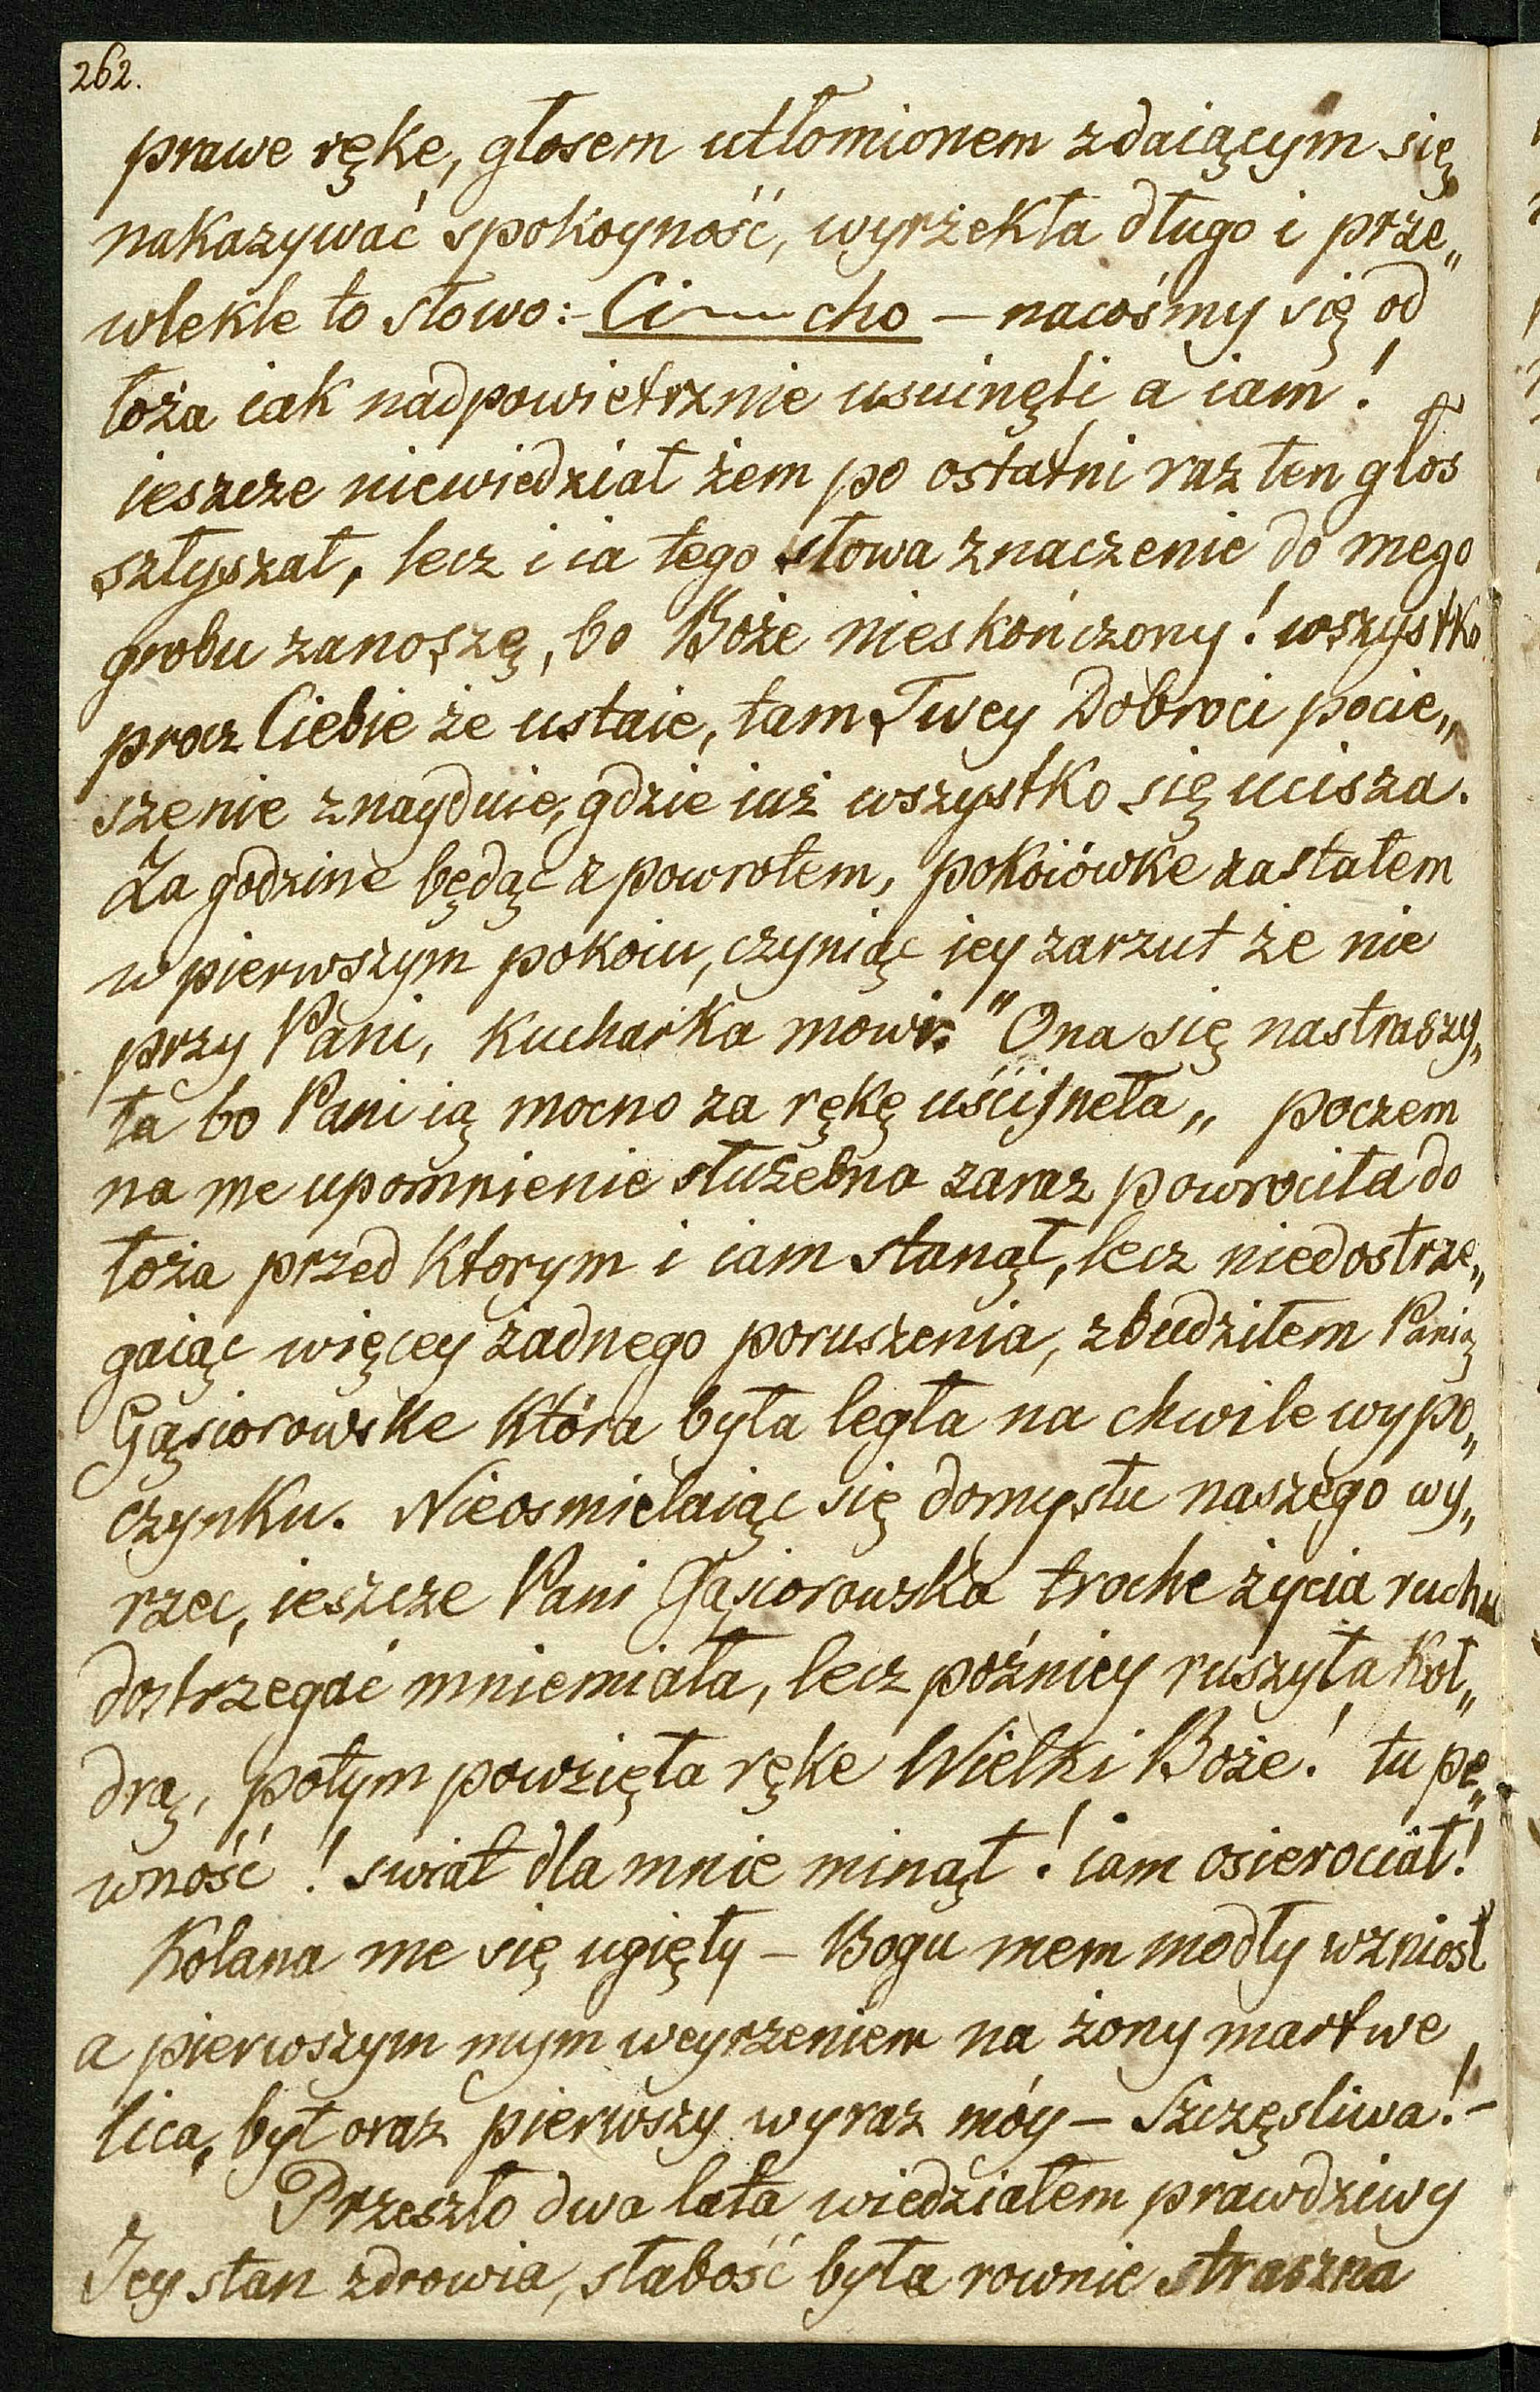 262.
prawe rękę, głosem utłomionem zdaiącym się
nakazywać spokoyność, wyrzekła długo i prze„
wlekle to słowo:- Ci~~~cho — nacośmy się od
łoża iak nadpowietrznie usuinęli a iam!
ieszcze niewiedział żem po ostatni raz ten głos
szłyszał, lecz i ia tego słowa znaczenie do mego
grobu zanoszę, bo Boże nieskończony! wszystko
procz Ciebie że ustaie, tam Twey Dobroci pocie„
szenie znayduie, gdzie iuż wszystko się ucisza.
Za godzine będąc z powrotem, pokoiówke zastałem
w pierwszym pokoiu, czyniąc iey zarzut że nie
przy Pani, Kucharka mowi: "Ona się nastraszy„
ła bo Pani ią mocno za rękę uściſneła„ poczem
na me upomnienie służebna zaraz powrociła do
łoża przed Ktorym i iam stanął, lecz niedostrze„
gaiąc więcey żadnego poruszenia, zbudziłem Panią
Gąsiorowske Która była legła na chwile wypo„
czynku. Nieosmielaiąc się domysłu naszego wy„
rzec, ieszcze Pani Gąsiorowska troche życia ruchu
dostrzegać mniemiała, lecz poźniey ruszyła Koł„
drą, potym powzięła ręke Wielki Boże! tu pe„
wność! swiat dla mnie minął! iam osierociał!
Kolana me się ugięły — Bogu mem modły wzniosł
a pierwszym mym weyrzeniem na żony martwe
lica, był oraz pierwszy wyraz móy — Szczęsliwa!-
Przeszło dwa lata wiedziałem prawdziwy
Jey stan zdrowia, słabość była rownie straszna